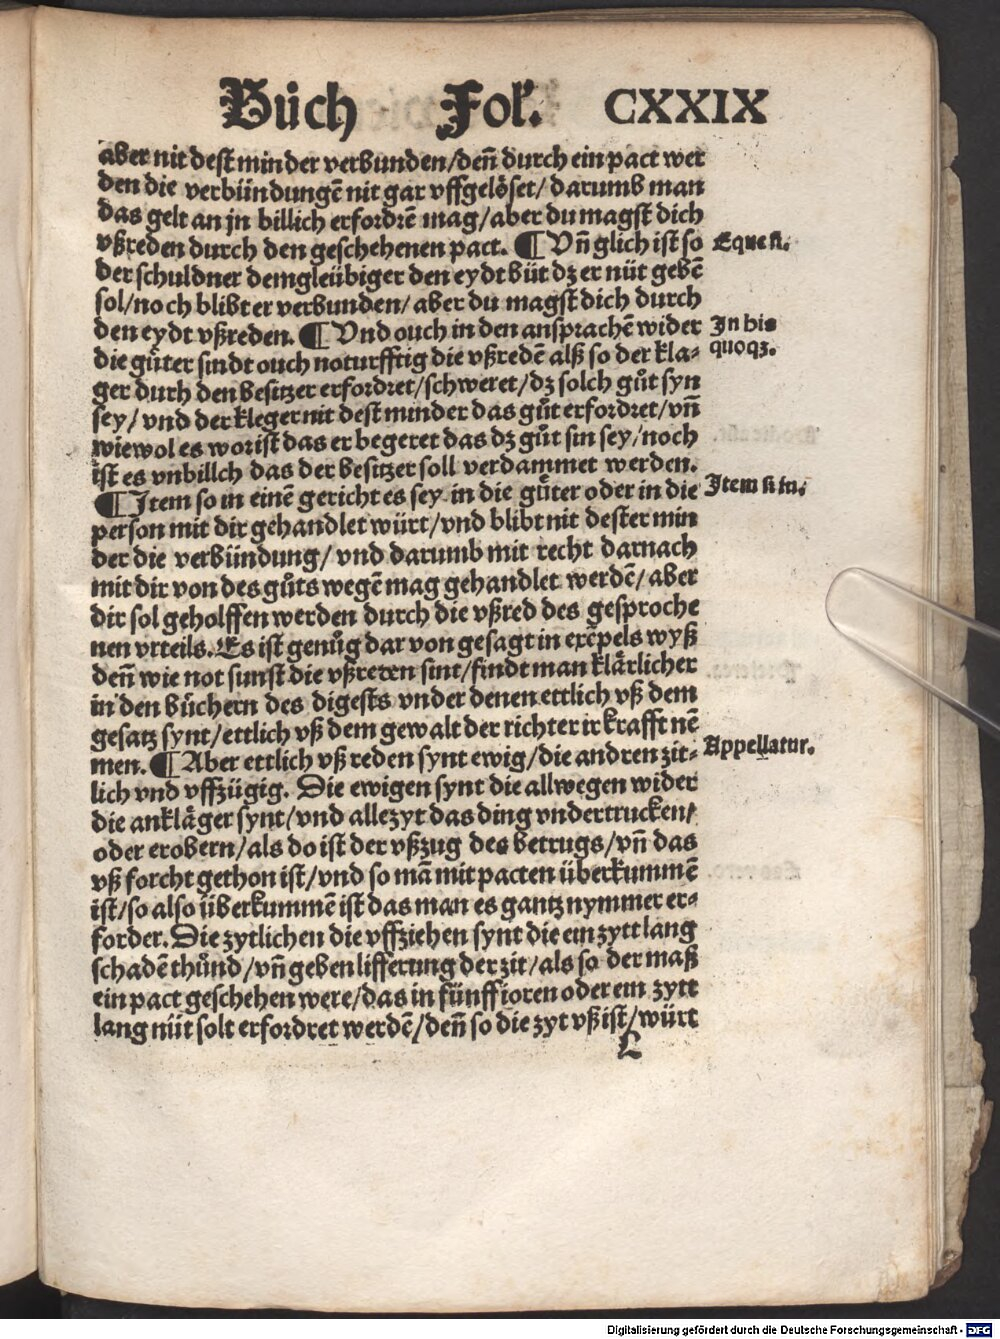 Bůch Fol. CXXIX
aber nit dest minder verbunden/deñ durch ein pact wer
den die verbündungē nit gar vffgelöset/darumb man
das gelt an jn billich erfordrē mag/aber du magst dich
vßreden durch den geschehenen pact. ¶ Vñ glich ist so
Eque si.
der schuldner dem gleübiger den eydt büt dz er nüt gebē
sol/noch blibt er verbunden/aber du magst dich durch
den eydt vßreden. ¶ Vnd ouch in den ansprachē wider
In his
die gůter sindt ouch noturfftig die vßredē alß so der kla⸗
quoqz.
ger durh den besitzer erfordret/schweret/dz solch gůt syn
sey/vnd der kleger nit dest minder das gůt erfordret/vñ
wiewol es wor ist das er begeret das dz gůt sin sey/noch
ist es vnbillch das der besitzer soll verdammet werden.
¶ Item so in einē gericht es sey in die gůter oder in die
Item si in.
person mit dir gehandlet würt/vnd blibt nit dester min
der die verbündung/vnd darumb mit recht darnach
mit dir von des gůts wegē mag gehandlet werdē/aber
dir sol geholffen werden durch die vßred des gesproche
nen vrteils. Es ist genůg dar von gesagt in exēpels wyß
deñ wie not sunst die vßreden sint/findt man klärlicher
in den bůchern des digests vnder denen ettlich vß dem
gesatz synt/ettlich vß dem gewalt der richter ir krafft nē
men. ¶ Aber ettlich vß reden synt ewig/die andren zit⸗
Appellatur.
lich vnd vffzügig. Die ewigen synt die allwegen wider
die ankläger synt/vnd allezyt das ding vndertrucken/
oder erobern/als do ist der vßzug des betrugs/vñ das
vß forcht gethon ist/vnd so mā mit pacten überkummē
ist/so also überkummē ist das man es gantz nymmer er⸗
forder. Die zytlichen die vffziehen synt die ein zytt lang
schadē thůnd/vñ geben lifferung der zit/als so der maß
ein pact geschehen were/das in fünff ioren oder ein zytt
lang nüt solt erfordret werdē/deñ so die zyt vß ist/würt
Digitalisierung gefördert durch die Deutsche Forschungsgemeinschaft - DFG